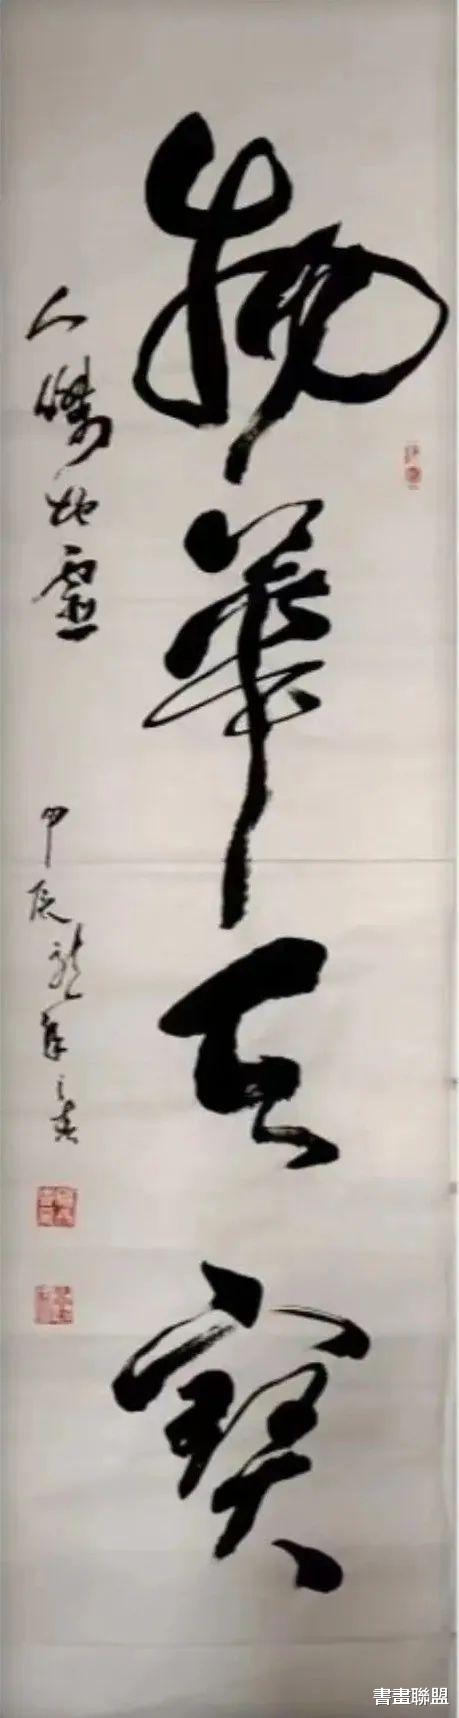 物華天寶
人傑地靈
甲辰龍年之春
書畫聯盟